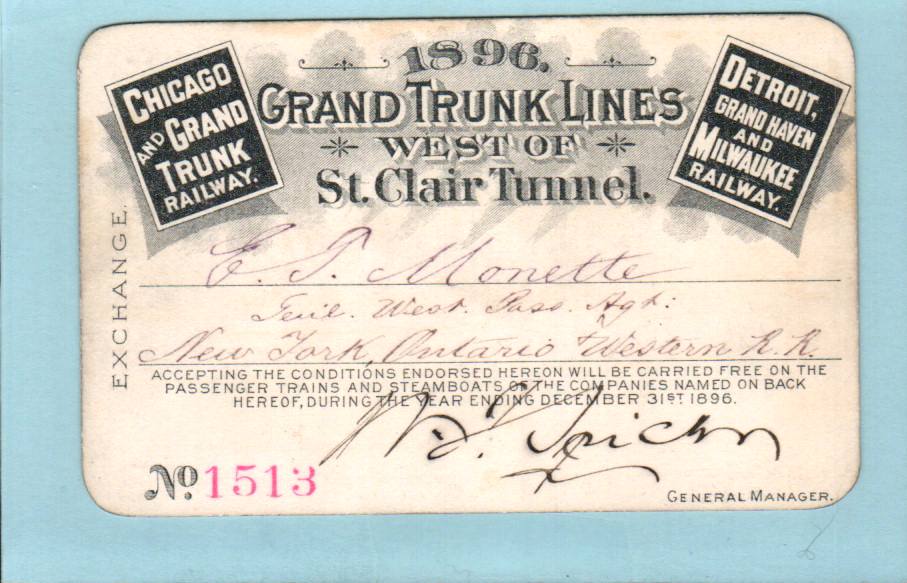 1896.
GRAND TRUNK LINES
WEST OF
St. Clair Tunnel.
CHICAGO
AND GRAND
TRUNK
RAILWAY.
DETROIT,
GRAND HAVEN
AND
MILWAUKEE
RAILWAY.
EXCHANGE.
Monette
Genl. West. Pass. Agt:
New York, Ontario & Western R. R.
ACCEPTING THE CONDITIONS ENDORSED HEREON WILL BE CARRIED FREE ON THE
PASSENGER TRAINS AND STEAMBOATS OF THE COMPANIES NAMED ON BACK
HEREOF, DURING THE YEAR ENDING DECEMBER 31ST 1896.
No. 1513
GENERAL MANAGER.